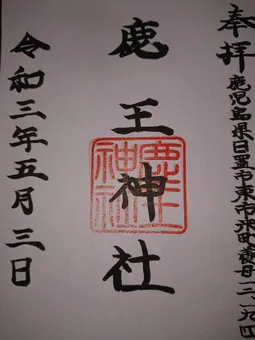 奉拝
鹿児島県日置市東市来町養母一二八九四
鹿王神社
令和三年五月三日